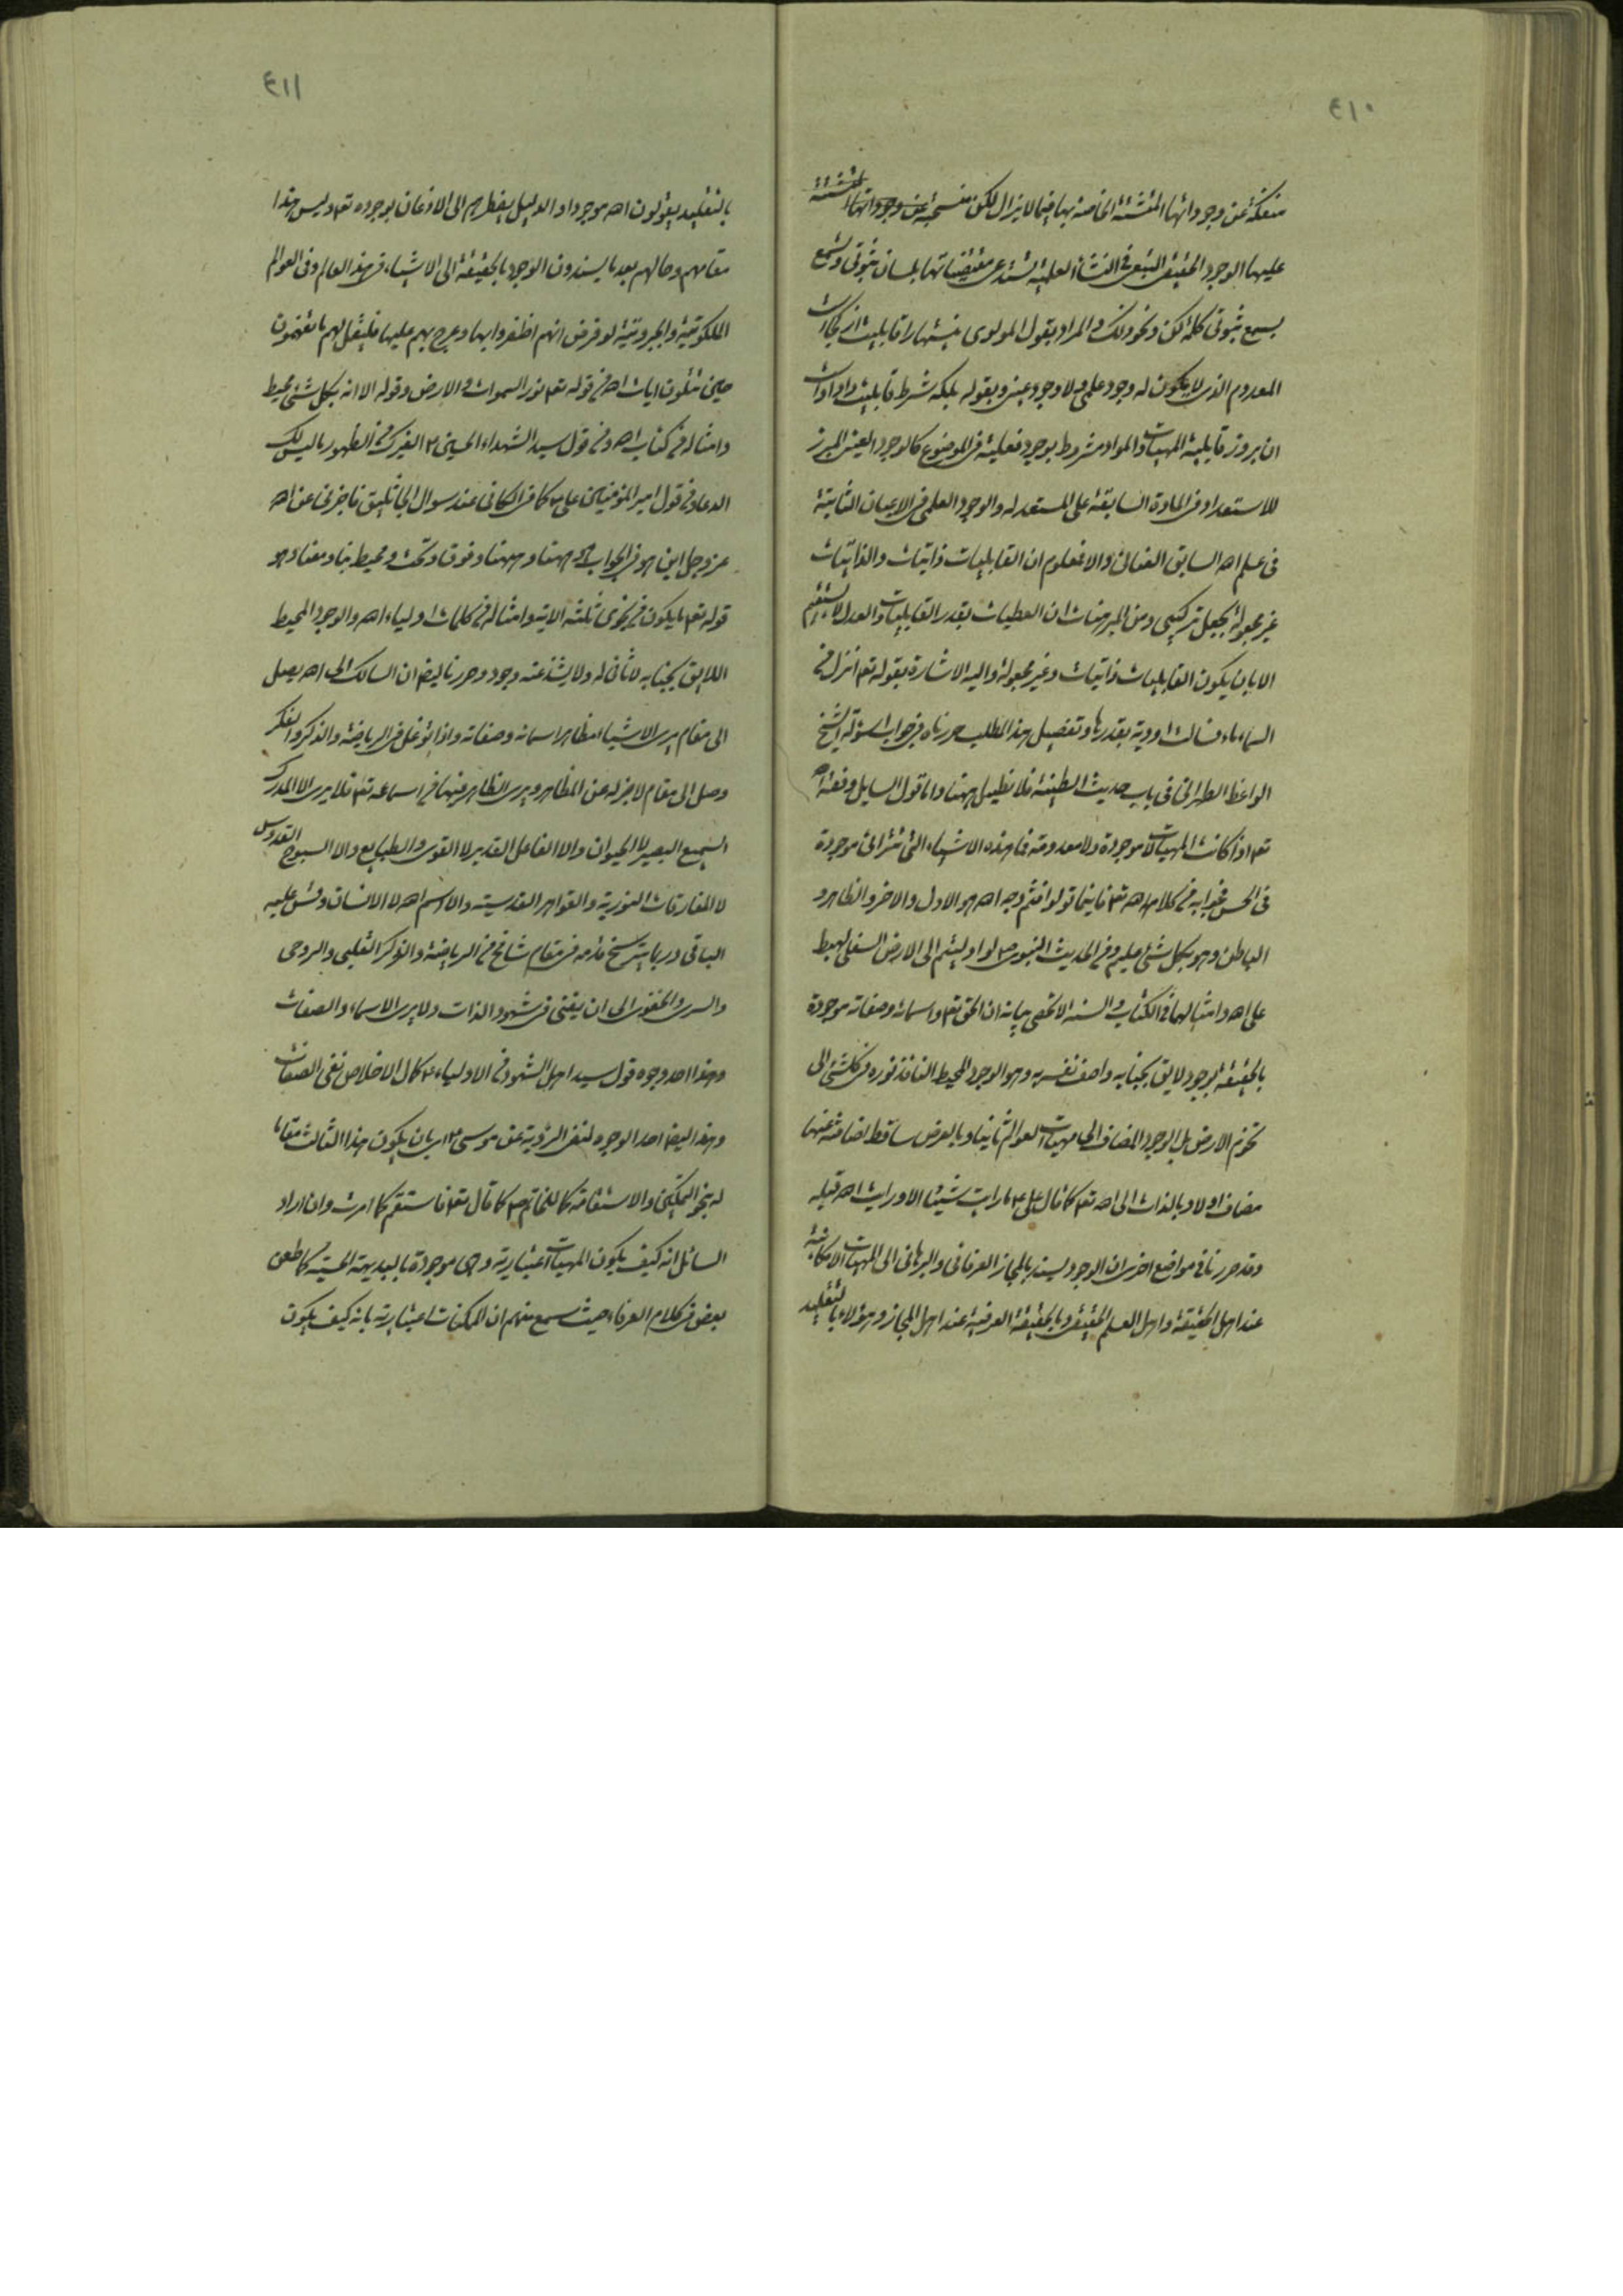 ٤١٠
منفكة عن وجوداتها المتشتتة الخاصة بها فيما لا يزال لكن منسحبة عن وجوداتها المتشتتة
عليها الوجود الحقيقى التبعى فى النشأة العلمية تستدعى مقتضياتها بلسان ثبوتى وتسمع
بسمع ثبوتى كلمة كن ونحو ذلك والمراد بقول المولوى نيستها را قابليت از كجاست
المعدوم الذى لا يكون له وجود علمى ولا وجود عينى وبقوله بلكه شرط قابليت داد اوست
ان بروز قابلية المهيات والمواد مشروط بوجود فعلية فى الموضوع كالوجود العينى المبرز
للاستعداد فى المادة السابقة على المستعد له والوجود العلمى فى الاعيان الثابتة
فى علم الله السابق الفعلى والا فمعلوم ان القابليات ذاتيات والذاتيات
غير مجعولة بجعل تركيبى ومن المبرهنات ان العطيات بقدر القابليات والعدل لا يستقيم
الا بان يكون القابليات ذاتيات وغير مجعولة واليه الاشارة بقوله تعالى انزل من
السماء ماء فسالت اودية بقدرها وتفصيل هذا المطلب حررناه فى جواب اسؤلة الشيخ
الواعظ الطهرانى فى باب حديث الطينة فلا نطيل ههنا واما قول السايل وفقه الله
تعالى اذا كانت المهيات لا موجودة ولا معدومة فما هذه الاشياء التى تترائى موجودة
فى الحس فجوابه فى كلام الله تعالى فاينما تولوا فثم وجه الله هو الاول والاخر والظاهر و
الباطن وهو بكل شئ عليم وفى الحديث النبوى ص لو ادليتم الى الارض السفلى لهبط
على الله وامثالهما فى الكتاب والسنة لا تحصى بيانه ان الحق تعالى واسمائه وصفاته موجودة
بالحقيقة بوجود لايق بجنابه واصف نفسه به وهو الوجود المحيط النافذ نوره فى كلشئ الى
تخوم الارض بل الوجود المضاف الى مهيات العوالم ثانيا وبالعرض ساقط اضافته عنها
مضاف اولا وبالذات الى الله تعالى كما قال على ع ما رايت شيئا الا ورايت الله قبله
وقد حررنا فى مواضع اخرى ان الوجود يسند بالمجاز العرفانى والبرهانى الى المهيات الامكانية
عند اهل الحقيقة واهل العلم الحقيقى وبالحقيقة العرفية عند اهل المجاز وهؤلاء بالتقليد
٤١١
بالتقليد يقولون الله موجود او الدليل يضطرهم الى الاذعان بوجوده تعالى وليس هذا
مقامهم وحالهم بعد ما يسندون الوجود بالحقيقة الى الاشياء فى هذا العالم وفى العوالم
الملكوتية والجبروتية لو فرض انهم اظفروا بها وعرج بهم عليها فليقل لهم ما تفهمون
حين تتلون ايات الله فى قوله تعالى نور السموات والارض وقوله الا انه بكل شئ محيط
وامثاله فى كتاب الله وفى قول سيد الشهداء الحسين ع الغيرك من الظهور ما ليس لك
الدعاء وفى قول امير المؤمنين على ع كما فى الكافى عند سؤال الجاثليق فاخبرنى عن الله
عز وجل اين هو فى الجواب هو ههنا وههنا وفوق وتحت ومحيط بنا ومعنا وهو
قوله تعالى ما يكون من نجوى ثلثة الاية وامثاله فى كلمات اولياء الله والوجود المحيط
اللايق بجنابه لا ثانى له ولا يشذ عنه وجود وحررنا ايضا ان السالك الى الله يصل
الى مقام يرى الاشياء مظاهر اسمائه وصفاته واذا توغل فى الرياضة والذكر والفكر
وصل الى مقام لا خبر له عن المظاهر ويرى الظاهر فيها من اسمائه تعالى فلا يرى الا المدرك
السميع البصير لا الحيوان والا الفاعل القدير لا القوى والطبايع والا السبوح القدوس
لا المفارقات النورية والقواهر القدسية والا اسم الله لا الانسان وقس عليه
الباقى وربما يترسخ قدمه فى مقام شامخ من الرياضة والذكر القلبى والروحى
والسرى والخفوى الى ان يفنى فى شهود الذات ولا يرى الاسماء والصفات
وهذا احد وجوه قول سيد اهل الشهود من الاولياء ع كمال الاخلاص نفى الصفات
وهذا ايضا احد الوجوه لنفى الرؤية عن موسى ع اى بان يكون هذا الثالث مقاما
له بنحو التمكين والاستقامة كما للخاتم ص كما قال تعالى فاستقم كما امرت وان اراد
السائل انه كيف يكون المهيات اعتبارية وهى موجودة بالبديهة الحسية كما طعن
بعض فى كلام العرفاء حيث سمع منهم ان الممكنات اعتبارية بانه كيف يكون